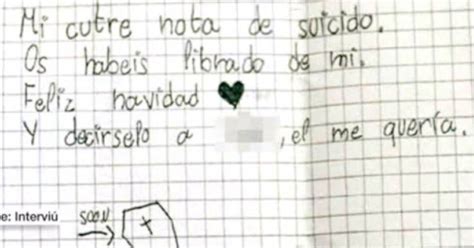 Mi cutre nota de suicido.
Os habeis librado de mi.
Feliz navidad
Y decirselo a , el me quería.
e: Interviú
SOON